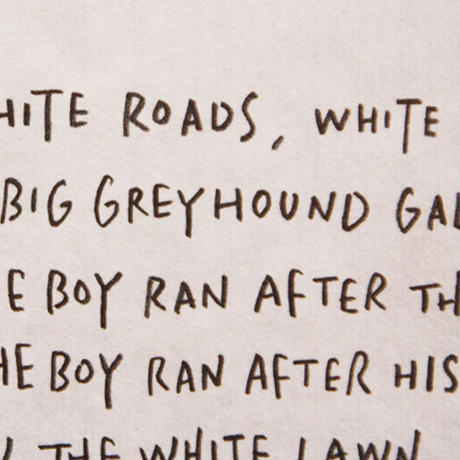 HITE ROADS, WHITE
BIG GREYHOUND GAL
E BOY RAN AFTER TH
HE BOY RAN AFTER HIS
THE WHITE LAWN